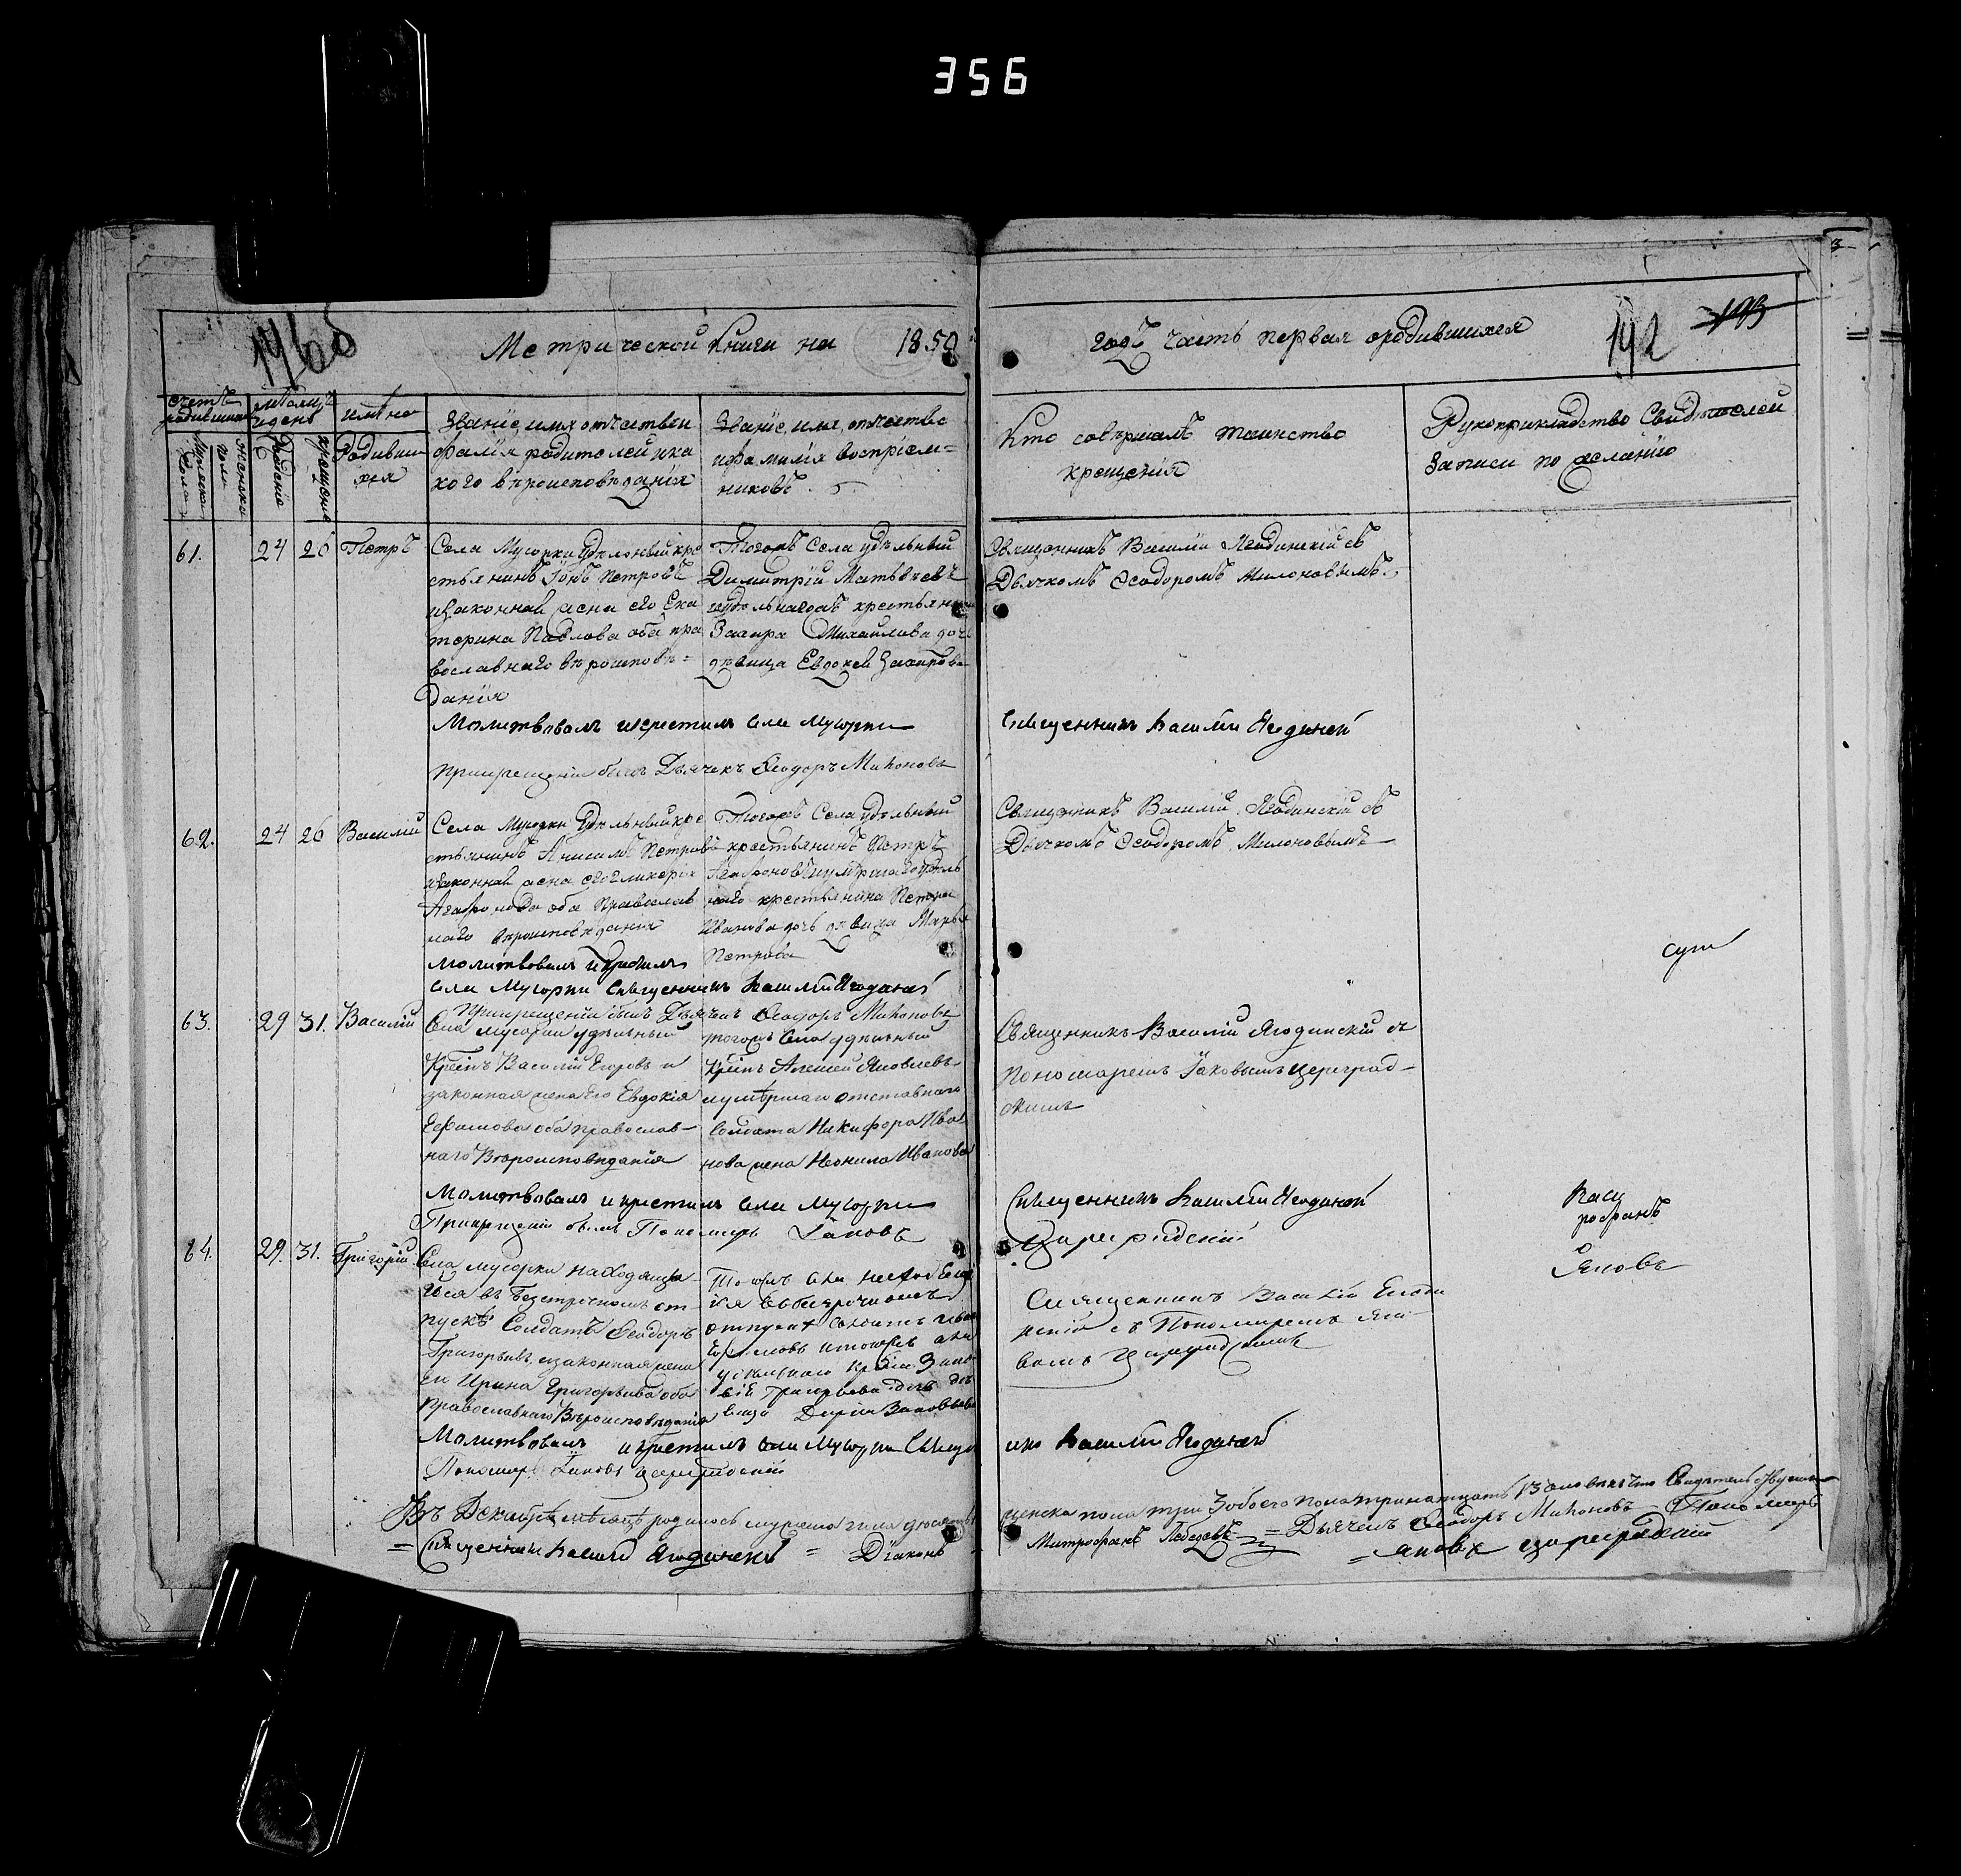 356
Метрической книги на 1850
годъ часть первая ородившихся
192
193
счетъ родившихся
мѣсяцъ и день
имѣна Родивших ся
Мужеска пола
женска
Рожденіе
крещение
Званіе, имя отчествои
фамилія родителей ика
кого вѣроисповѣданія
Званіе, имя, отчество
ифамилія воспріем=
никовъ.
Кто совѣршалъ таинство
крещенія
Рукоприкладство Свидѣтелей
записи по желанію
61. 24 26 Петръ
Села Мусорки Удѣльный кре
стьянинъ Іонъ Петровъ
изаконная жена его Ека
терина Павлова оба пра
вославнаго вѣроисповѣ=
данія
Тогожъ Села удѣльный
Димитрій Матвѣевъ
иудѣльнагожъ крестьянина
Захара Михайлова дочь
дѣвица Евдокея Захарова
Священникъ Василій Ягодинскій съ
Дьячкомъ Ѳеодоромъ Милоновымъ.
Молитвовалъ икрестилъ села Мусорки
Священникъ Василій Ягодинскій
прикрещеніи былъ Дьячекъ Ѳеодоръ Милоновъ
62. 24 26 Василій
Села Мусорки Удѣльный кре
стьянинъ Анисимъ Петровъ
изаконная жена его Гликерія
Агафонова оба Православ
наго вѣроисповѣданія
Тогожъ Села удѣльный
крестьянинъ Петръ
Агафоновъ иумѣршаго удѣль
наго крестьянина Петра
Иванова дочь дѣвица Марья
Петрова
Священникъ Василій Ягодинскій съ
Дьячкомъ Ѳеодоромъ Милоновымъ
Молитвовалъ икрестилъ
села Мусорки Священникъ Василій Ягодинскій
Прикрещеніи былъ Дьячекъ Ѳеодоръ Милоновъ
63. 29 31. Василій
Села Мусорки удѣльный
Кр҃інъ Василій Егоровъ и
законная жена его Евдокія
Ефимова оба православ-
наго Вѣроисповѣданія
тогожъ Села удѣльный
кр҃інъ Алексей Яковлевъ
иумѣршаго отставнаго
Солдата Никифора Ива
нова жена Неонила Иванова
Священникъ Василій Ягодинскій съ
Пономаремъ Іаковымъ Цареград-
скимъ
Молитвовалъ и крестилъ села Мусорки
Священникъ Василій Ягодинскій
Прикрещеніи былъ Пономарь Іаковъ
Цареградскій
64. 29. 31. Григорій
Села Мусорки находящій
ся въ безсрочномъ от-
пускѣ Солдатъ Ѳеодоръ
Григорьевъ, изаконная жена
его Ирина Григорьева оба
православнаго Вѣроисповѣданія
Тогожъ села находящій
ся въ безсрочномъ
отпускѣ Солдатъ
Григорьева дочь дѣ
вица Дарія Зиновьева
Священникъ Василій Ягоди
нскій съ Пономаремъ Яко
вомъ Цареградскимъ
Молитвовалъ икрестилъ села Мусорки Священ
никъ Василій Ягодинскій
Пономарь Іаковъ Цареградскій
Въ Декабрѣ мѣсяцѣ родилось мужеска пола десять
женска пола три Зобоего пола тринатцать
= Священникъ Василій Ягодинскій = Діаконъ
Митрофанъ Лебедевъ = Дьячекъ Ѳеодоръ Милоновъ Пономарь
= Яковъ Цареградскій